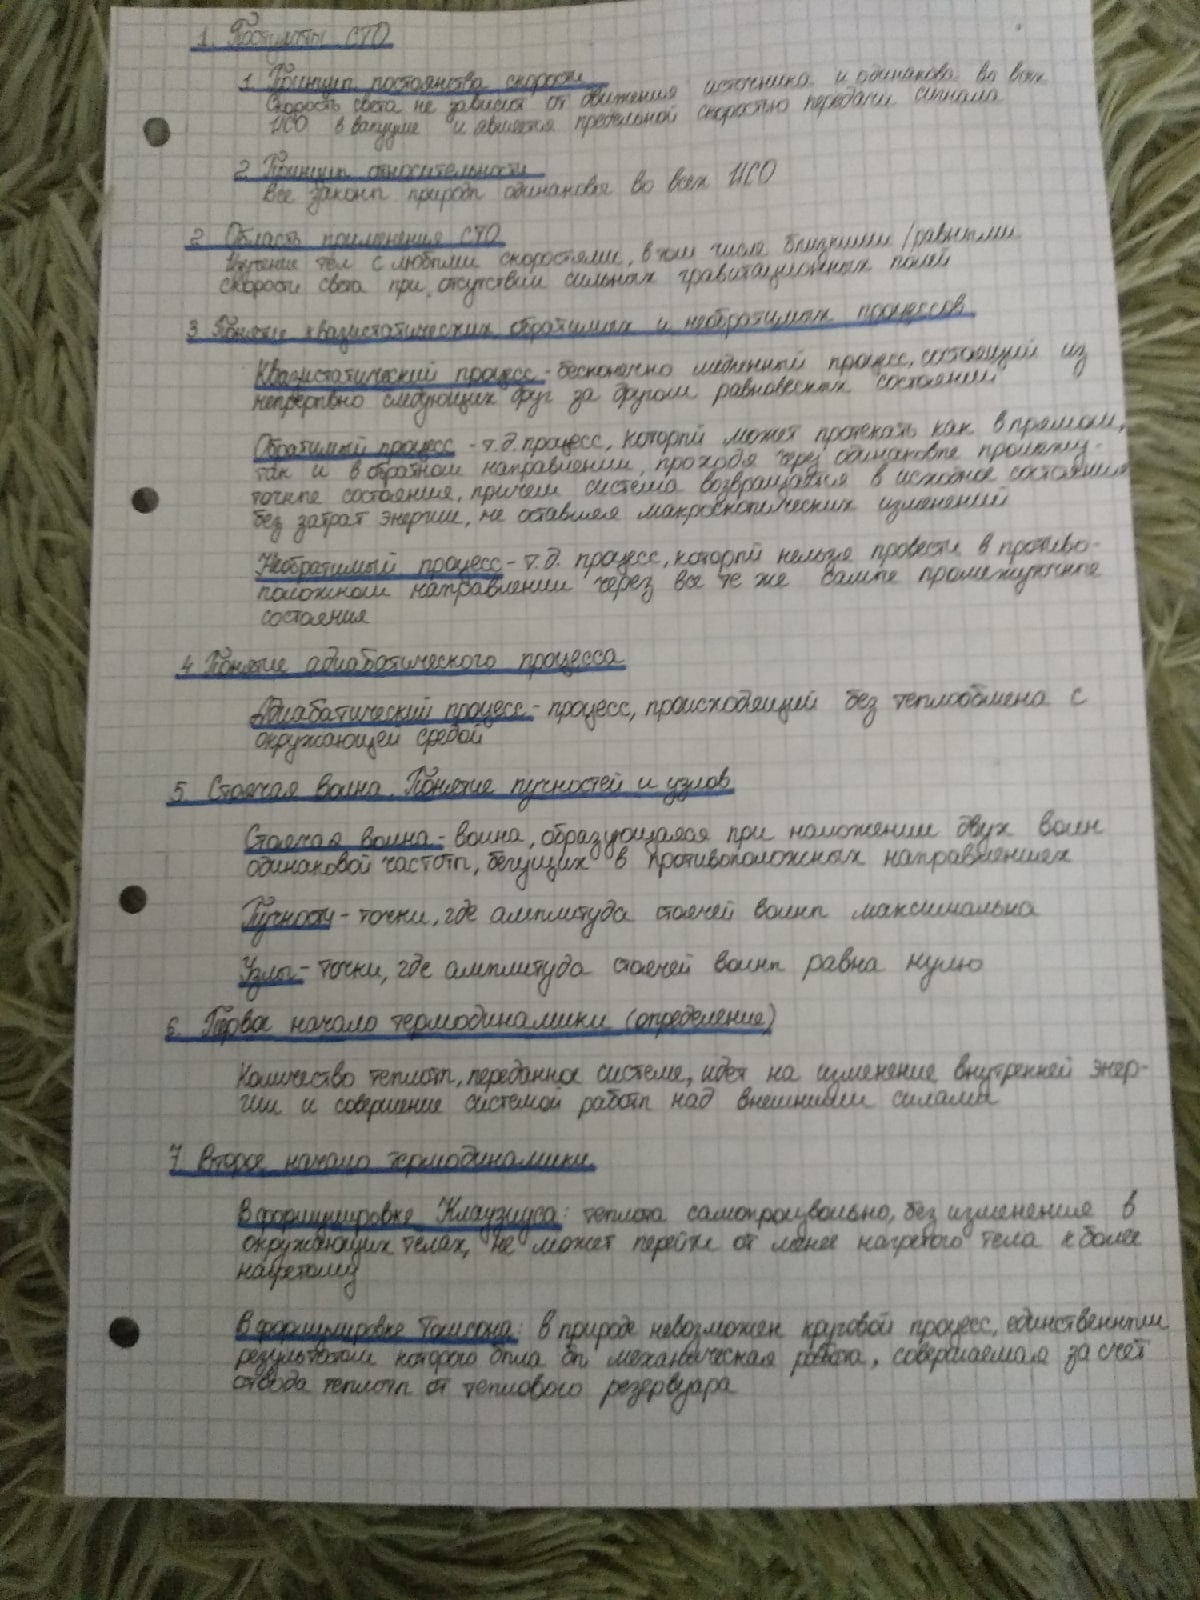 1. Постулаты СТО
1. Принцип постоянства скорости
Скорость света не зависит от движения источника и одинакова во всех
ИСО в вакууме и является предельной скоростью передачи сигнала
2. Принцип относительности
Все законы природы одинаковы во всех ИСО
2. Область применения СТО
Изучение тел с любыми скоростями, в том числе близкими/равными
скорости света при отсутствии сильных гравитационных полей
3. Понятие квазистатических, обратимых и необратимых процессов
Квазистатический процесс - бесконечно медленный процесс, состоящий из
непрерывно следующих друг за другом равновесных состояний
Обратимый процесс - т.д. процесс, который может протекать как в прямом,
так и в обратном направлении, проходя через одинаковые промежу-
точные состояния, причем система возвращается в исходное состояние
без затрат энергии, не оставляя макроскопических изменений
Необратимый процесс - т.д. процесс, который нельзя провести в противо-
положном направлении через все те же самые промежуточные
состояния
4. Понятие адиабатического процесса
Адиабатический процесс - процесс, происходящий без теплообмена с
окружающей средой
5. Стоячая волна. Понятие пучностей и узлов
Стоячая волна - волна, образующаяся при наложении двух волн
одинаковой частоты, бегущих в противоположных направлениях
Пучности - точки, где амплитуда стоячей волны максимальна
Узлы - точки, где амплитуда стоячей волны равна нулю
6. Первое начало термодинамики (определение)
Количество теплоты, переданное системе, идет на изменение внутренней энер-
гии и совершение системой работы над внешними силами
7. Второе начало термодинамики
В формулировке Клаузиуса: теплота самопроизвольно, без изменения в
окружающих телах, не может перейти от менее нагретого тела к более
нагретому
В формулировке Томсона: в природе невозможен круговой процесс, единственным
результатом которого была бы механическая работа, совершаемая за счет
отвода теплоты от теплового резервуара